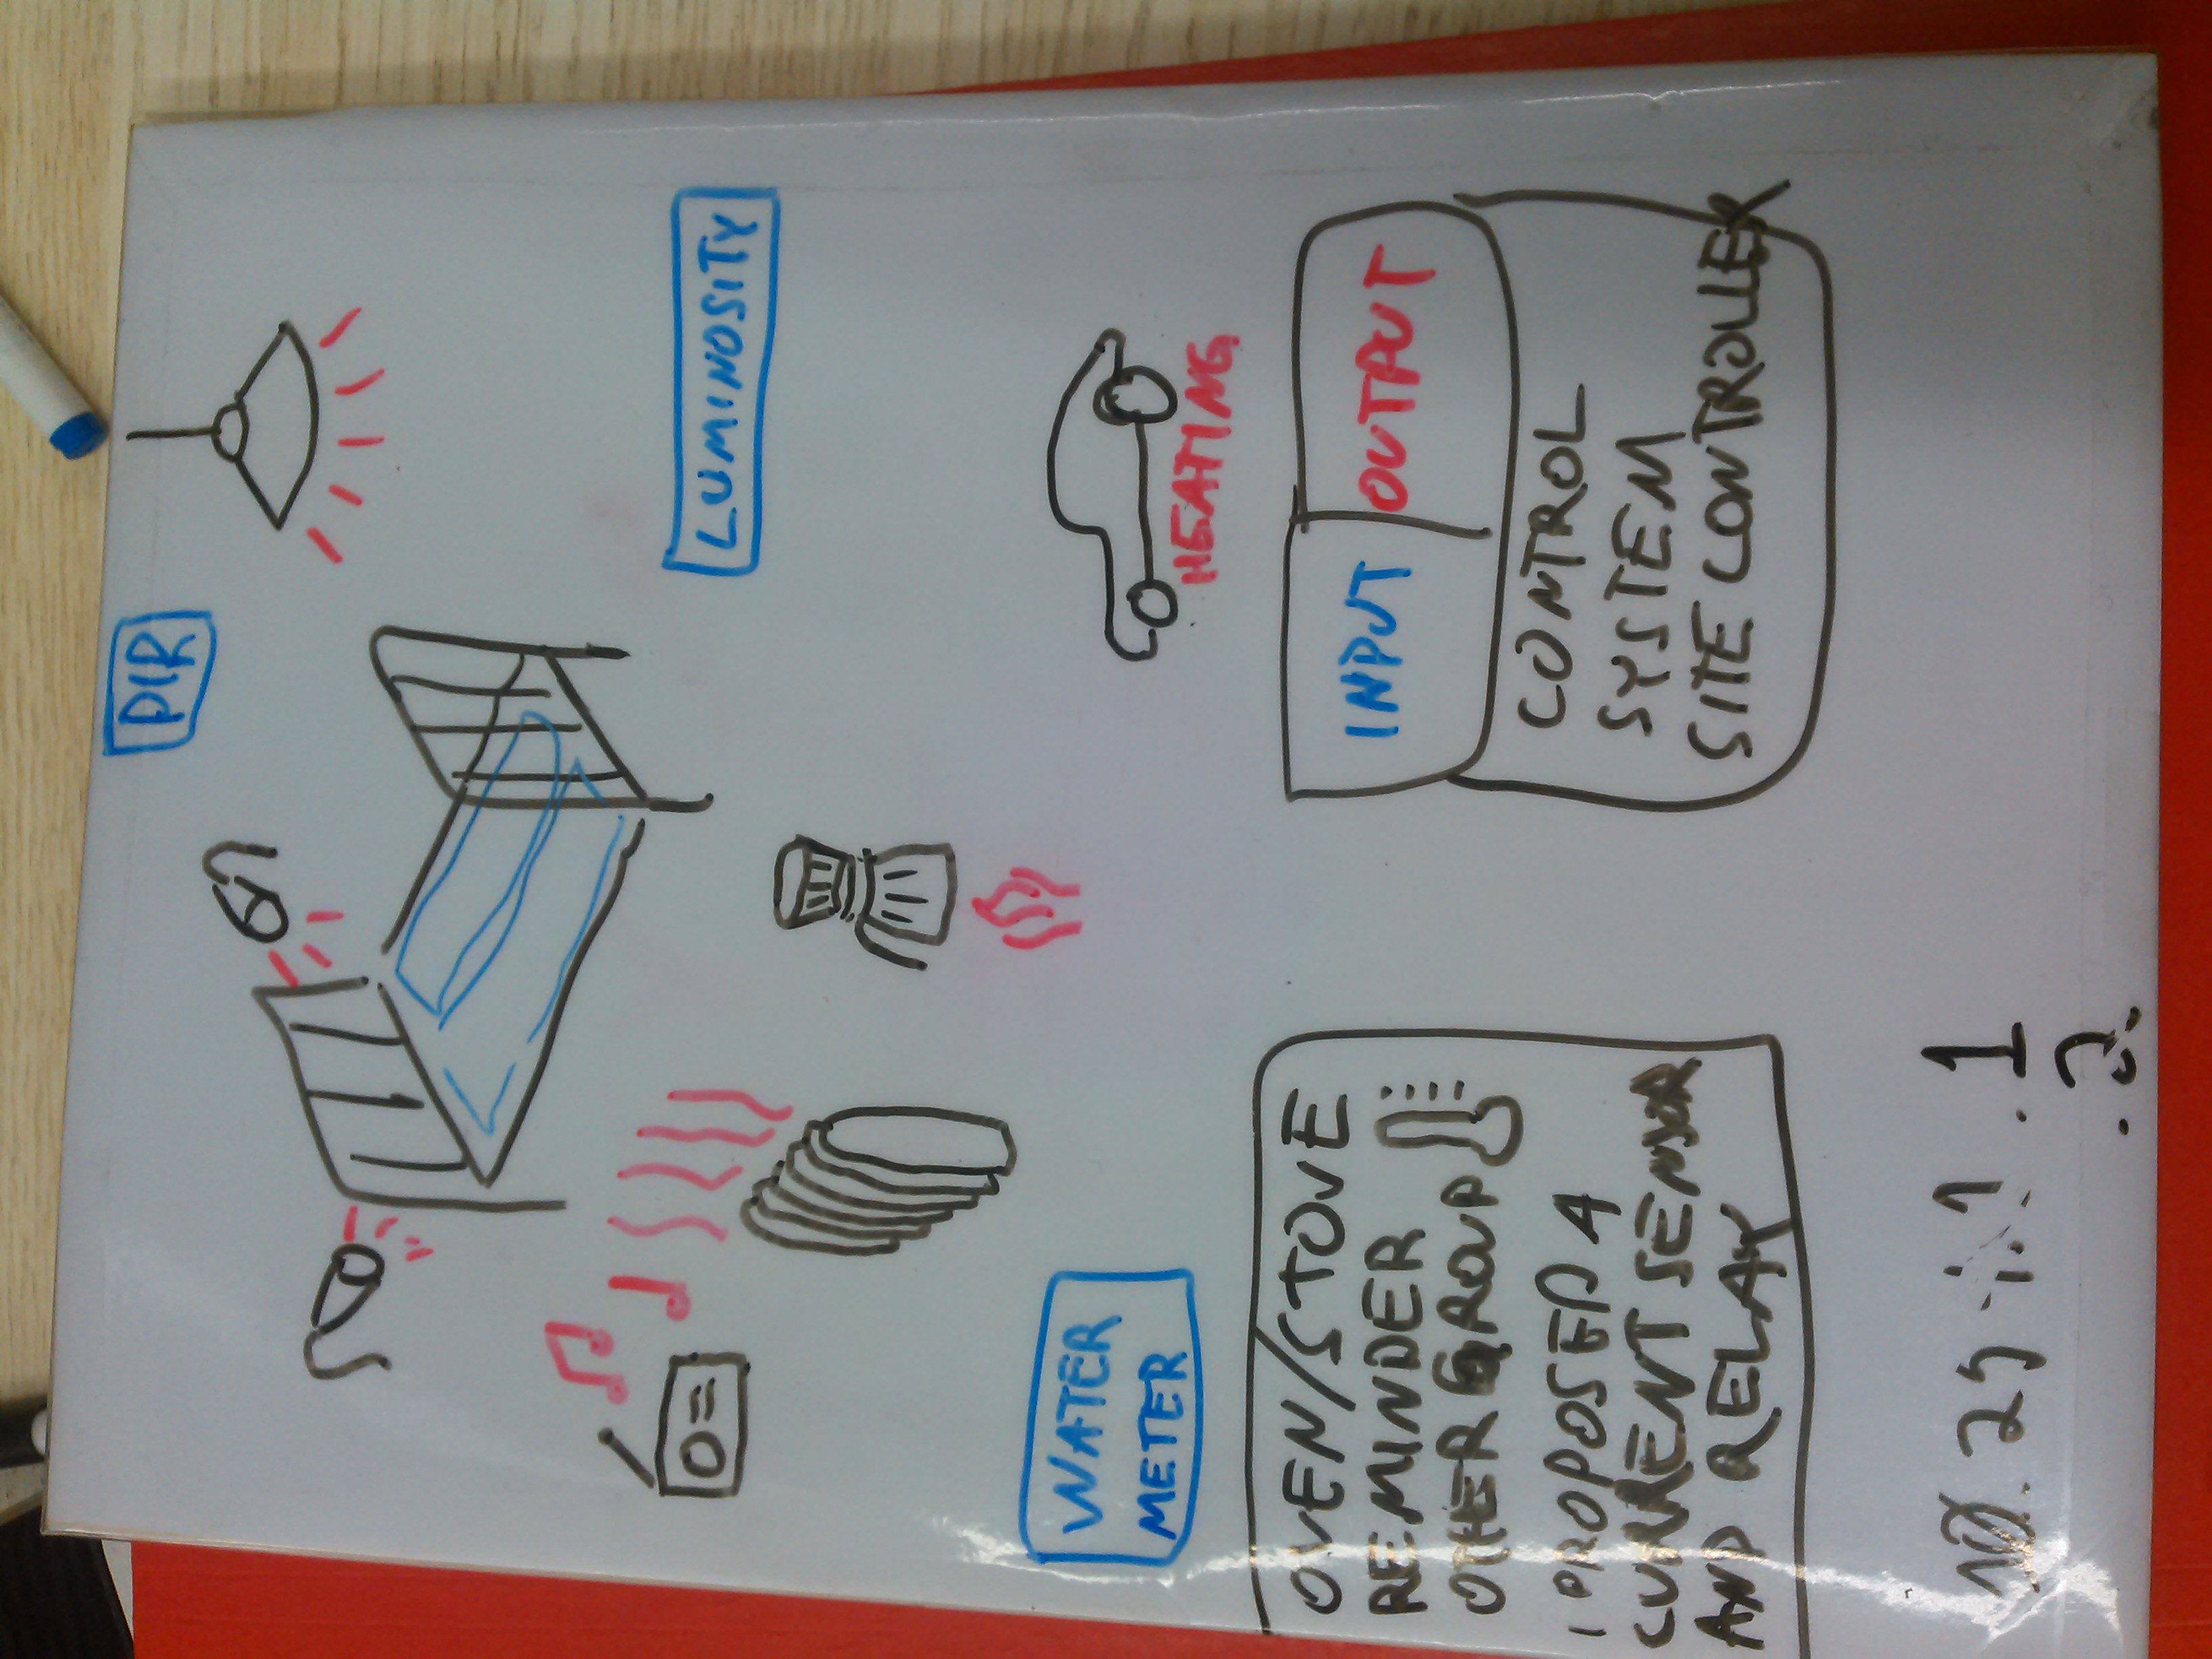 PIR
LUMINOSITY
WATER
METER
HEATING
OVEN/STOVE
REMINDER
OTHER GROUP
I PROPOSED A
CURRENT SENSOR
AND RELAY
INPUT OUTPUT
CONTROL
SYSTEM
SITE CONTROLLER
.1
.2